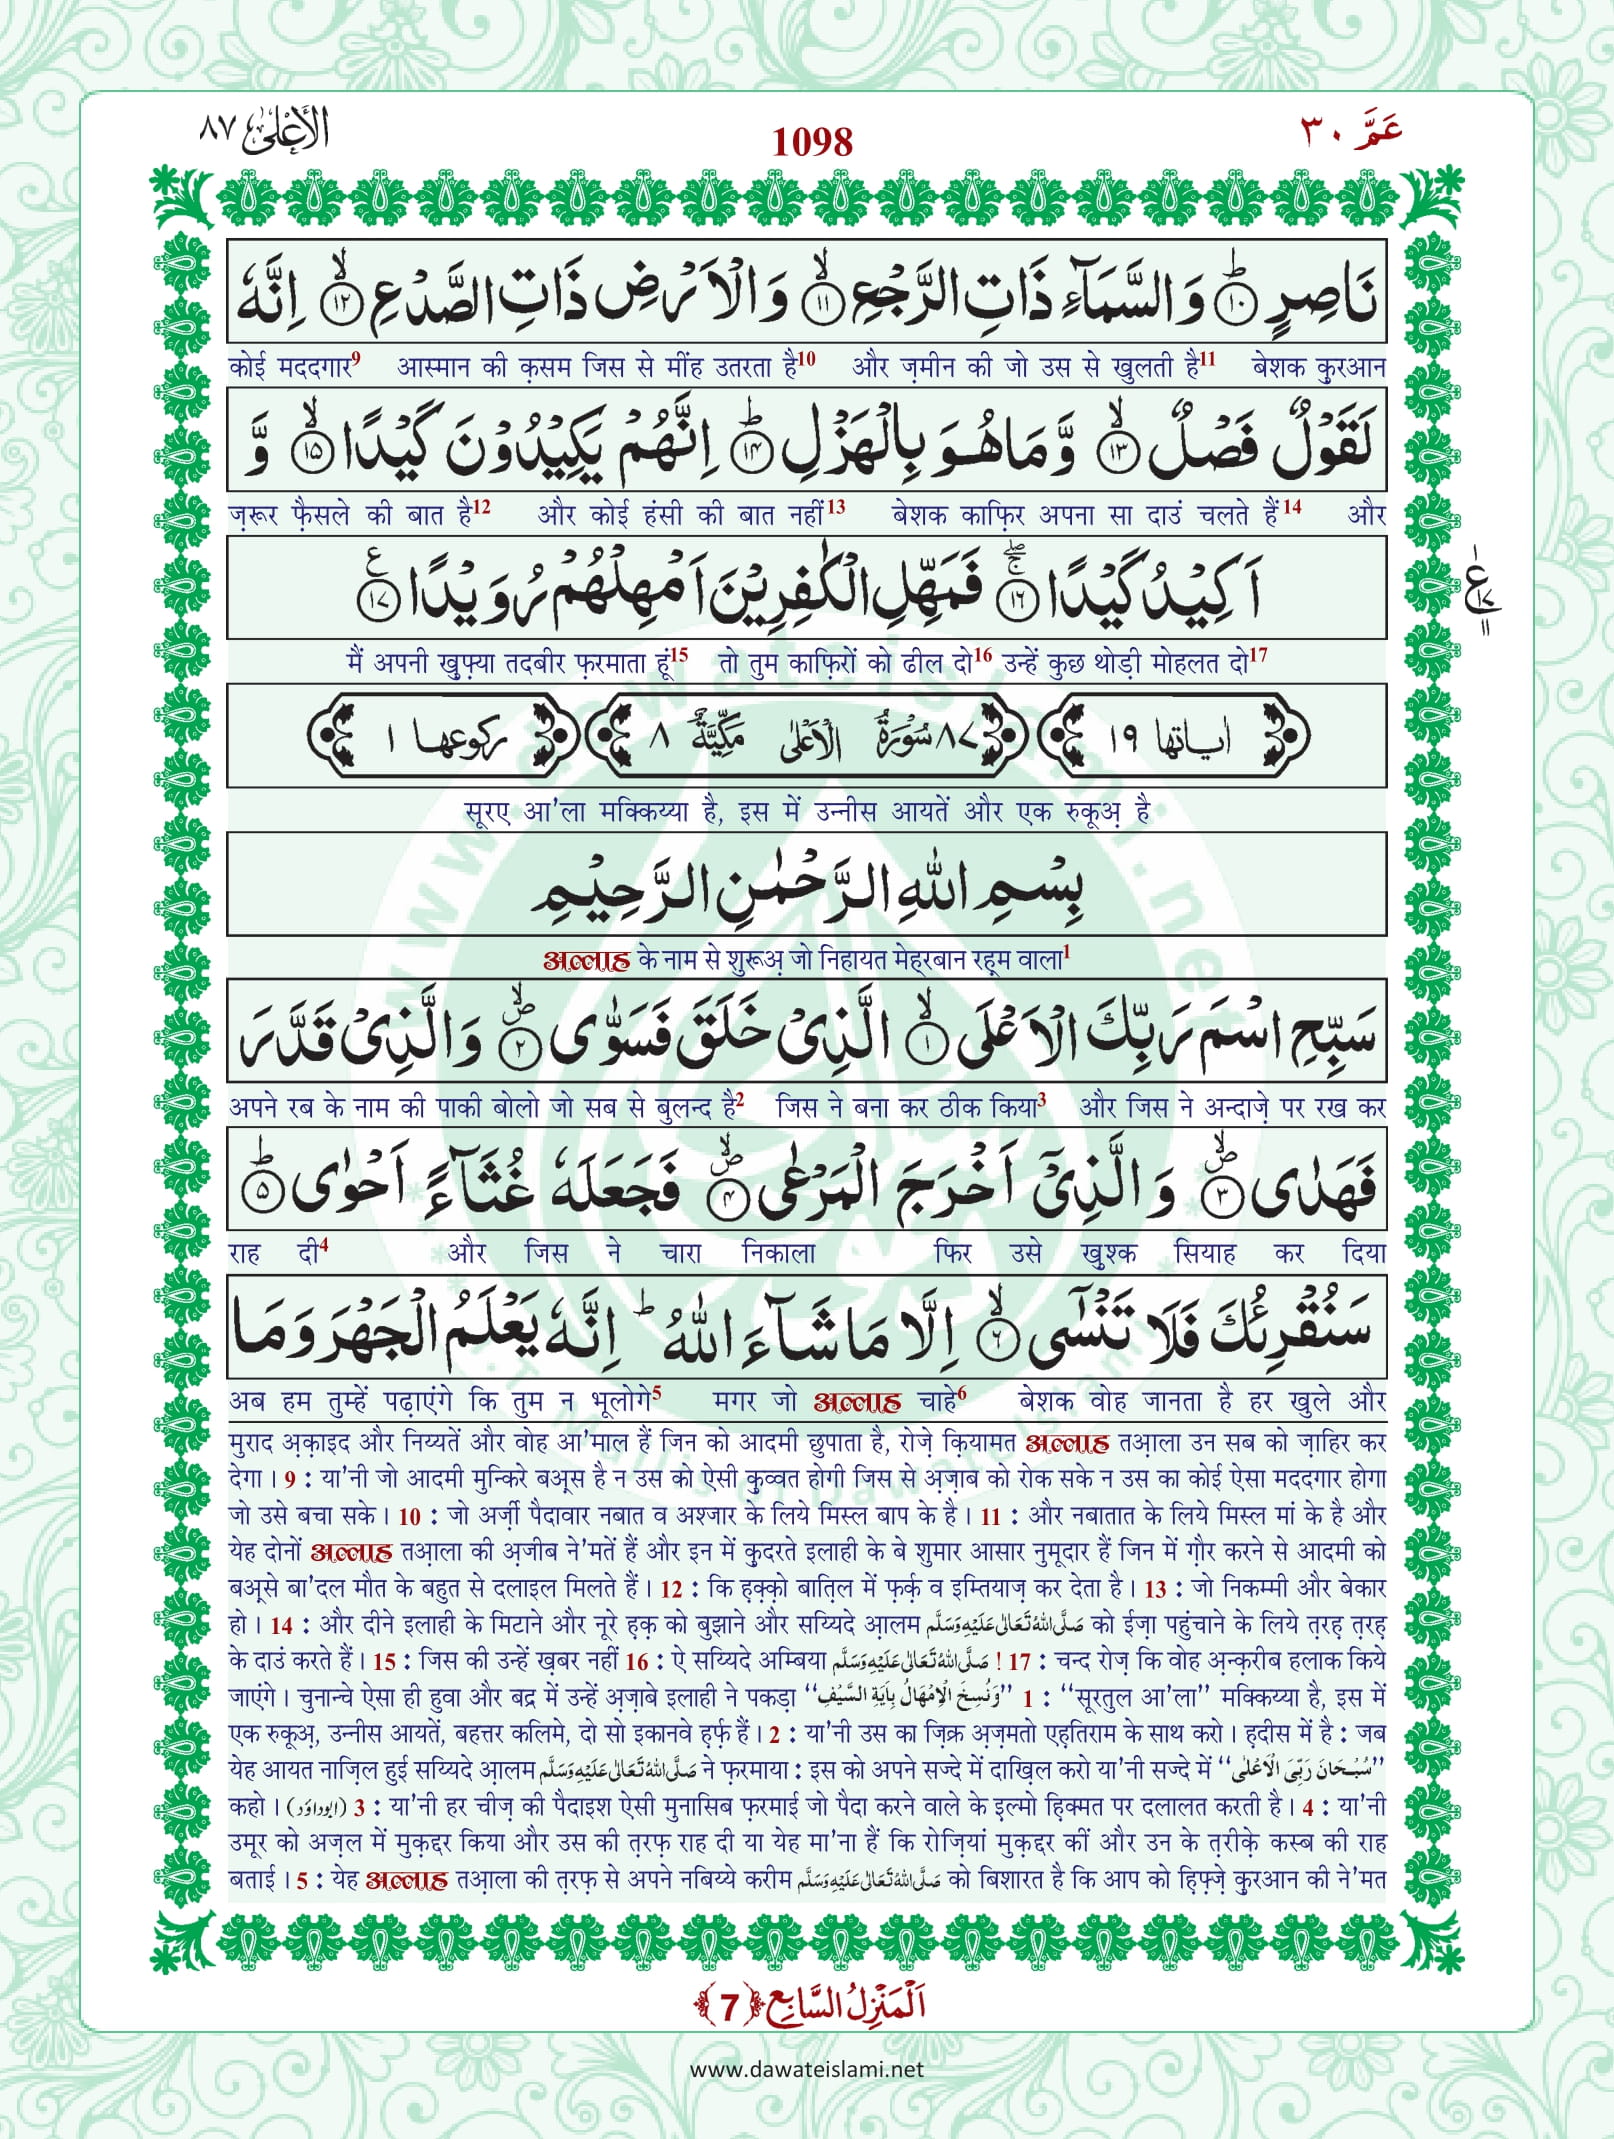 الأعلىٰ ٨٧
1098
عَمَّ ٣٠
نَاصِرٍ ﴿١٠﴾ؕ وَ السَّمَآءِ ذَاتِ الرَّجْعِ ﴿١١﴾ۙ وَ الْاَرْضِ ذَاتِ الصَّدْعِ ﴿١٢﴾ۙ اِنَّهٗ
कोई मददगार9 आस्मान की क़सम जिस से मींह उतरता है10 और ज़मीन की जो उस से खुलती है11 बेशक क़ुरआन
لَقَوْلٌ فَصْلٌ ﴿١٣﴾ۙ وَّ مَا هُوَ بِالْهَزْلِ ﴿١٤﴾ؕ اِنَّهُمْ یَكِیْدُوْنَ كَیْدًا ﴿١٥﴾ۙ وَّ
ज़रूर फ़ैसले की बात है12 और कोई हंसी की बात नहीं13 बेशक काफ़िर अपना सा दाउं चलते हैं14 और
اَكِیْدُ كَیْدًا ﴿١٦﴾ۚۖ فَمَهِّلِ الْكٰفِرِیْنَ اَمْهِلْهُمْ رُوَیْدًا ﴿١٧﴾
ع ١٧ ١١
मैं अपनी ख़ुफ़्या तदबीर फ़रमाता हूं15 तो तुम काफ़िरों को ढील दो16 उन्हें कुछ थोड़ी मोहलत दो17
اٰیاتها ١٩ ٨٧ سُوْرَةُ الْاَعْلٰى مَكِّیَّةٌ ٨ ركوعها ١
सूरए आ'ला मक्किय्या है, इस में उन्नीस आयतें और एक रुकूअ़ है
بِسْمِ اللّٰهِ الرَّحْمٰنِ الرَّحِیْمِ
अल्लाह के नाम से शुरूअ़ जो निहायत मेहरबान रह़म वाला1
سَبِّحِ اسْمَ رَبِّكَ الْاَعْلَى ﴿١﴾ۙ الَّذِیْ خَلَقَ فَسَوّٰى ﴿٢﴾ وَ الَّذِیْ قَدَّرَ
अपने रब के नाम की पाकी बोलो जो सब से बुलन्द है2 जिस ने बना कर ठीक किया3 और जिस ने अन्दाज़े पर रख कर
فَهَدٰى ﴿٣﴾ وَ الَّذِیْۤ اَخْرَجَ الْمَرْعٰى ﴿٤﴾ فَجَعَلَهٗ غُثَآءً اَحْوٰى ﴿٥﴾ؕ
राह दी4 और जिस ने चारा निकाला फिर उसे खुश्क सियाह कर दिया
سَنُقْرِئُكَ فَلَا تَنْسٰۤى ﴿٦﴾ۙ اِلَّا مَا شَآءَ اللّٰهُؕ اِنَّهٗ یَعْلَمُ الْجَهْرَ وَ مَا
अब हम तुम्हें पढ़ाएंगे कि तुम न भूलोगे5 मगर जो अल्लाह चाहे6 बेशक वोह जानता है हर खुले और
मुराद अ़क़ाइद और निय्यतें और वोह आ'माल हैं जिन को आदमी छुपाता है, रोज़े क़ियामत अल्लाह तआ़ला उन सब को ज़ाहिर कर
देगा । 9 : या'नी जो आदमी मुन्किरे बअ़्स है न उस को ऐसी क़ुव्वत होगी जिस से अ़ज़ाब को रोक सके न उस का कोई ऐसा मददगार होगा
जो उसे बचा सके । 10 : जो अर्ज़ी पैदावार नबात व अश्जार के लिये मिस्ल बाप के है । 11 : और नबातात के लिये मिस्ल मां के है और
येह दोनों अल्लाह तआ़ला की अ़जीब ने'मतें हैं और इन में क़ुदरते इलाही के बे शुमार आसार नुमूदार हैं जिन में ग़ौर करने से आदमी को
बअ़्से बा'दल मौत के बहुत से दलाइल मिलते हैं । 12 : कि ह़क़्क़ो बात़िल में फ़र्क़ व इम्तियाज़ कर देता है । 13 : जो निकम्मी और बेकार
हो । 14 : और दीने इलाही के मिटाने और नूरे ह़क़ को बुझाने और सय्यिदे आ़लम صَلَّى اللهُ تَعَالٰى عَلَيْهِ وَسَلَّم को ईज़ा पहुंचाने के लिये त़रह़ त़रह़
के दाउं करते हैं । 15 : जिस की उन्हें ख़बर नहीं 16 : ऐ सय्यिदे अम्बिया صَلَّى اللهُ تَعَالٰى عَلَيْهِ وَسَلَّم ! 17 : चन्द रोज़ कि वोह अ़न्क़रीब हलाक किये
जाएंगे । चुनान्चे ऐसा ही हुवा और बद्र में उन्हें अ़ज़ाबे इलाही ने पकड़ा ‘‘وَنُسِخَ الْاِمْهَالُ بِاٰيَةِ السَّيْفِ’’ 1 : ‘‘सूरतुल आ'ला’’ मक्किय्या है, इस में
एक रुकूअ़, उन्नीस आयतें, बहत्तर कलिमे, दो सो इकानवे ह़र्फ़ हैं । 2 : या'नी उस का ज़िक्र अ़ज़मतो एह़तिराम के साथ करो । ह़दीस में है : जब
येह आयत नाज़िल हुई सय्यिदे आ़लम صَلَّى اللهُ تَعَالٰى عَلَيْهِ وَسَلَّم ने फ़रमाया : इस को अपने सज्दे में दाख़िल करो या'नी सज्दे में ‘‘سُبْحَانَ رَبِّیَ الْاَعْلٰى’’
कहो । (ابوداؤد) 3 : या'नी हर चीज़ की पैदाइश ऐसी मुनासिब फ़रमाई जो पैदा करने वाले के इ़ल्मो ह़िक्मत पर दलालत करती है । 4 : या'नी
उमूर को अज़ल में मुक़द्दर किया और उस की त़रफ़ राह दी या येह मा'ना हैं कि रोज़ियां मुक़द्दर कीं और उन के त़रीक़े कस्ब की राह
बताई । 5 : येह अल्लाह तआ़ला की त़रफ़ से अपने नबिय्ये करीम صَلَّى اللهُ تَعَالٰى عَلَيْهِ وَسَلَّم को बिशारत है कि आप को ह़िफ़्ज़े क़ुरआन की ने'मत
اَلْمَنْزِلُ السَّابِع ﴿7﴾
www.dawateislami.net